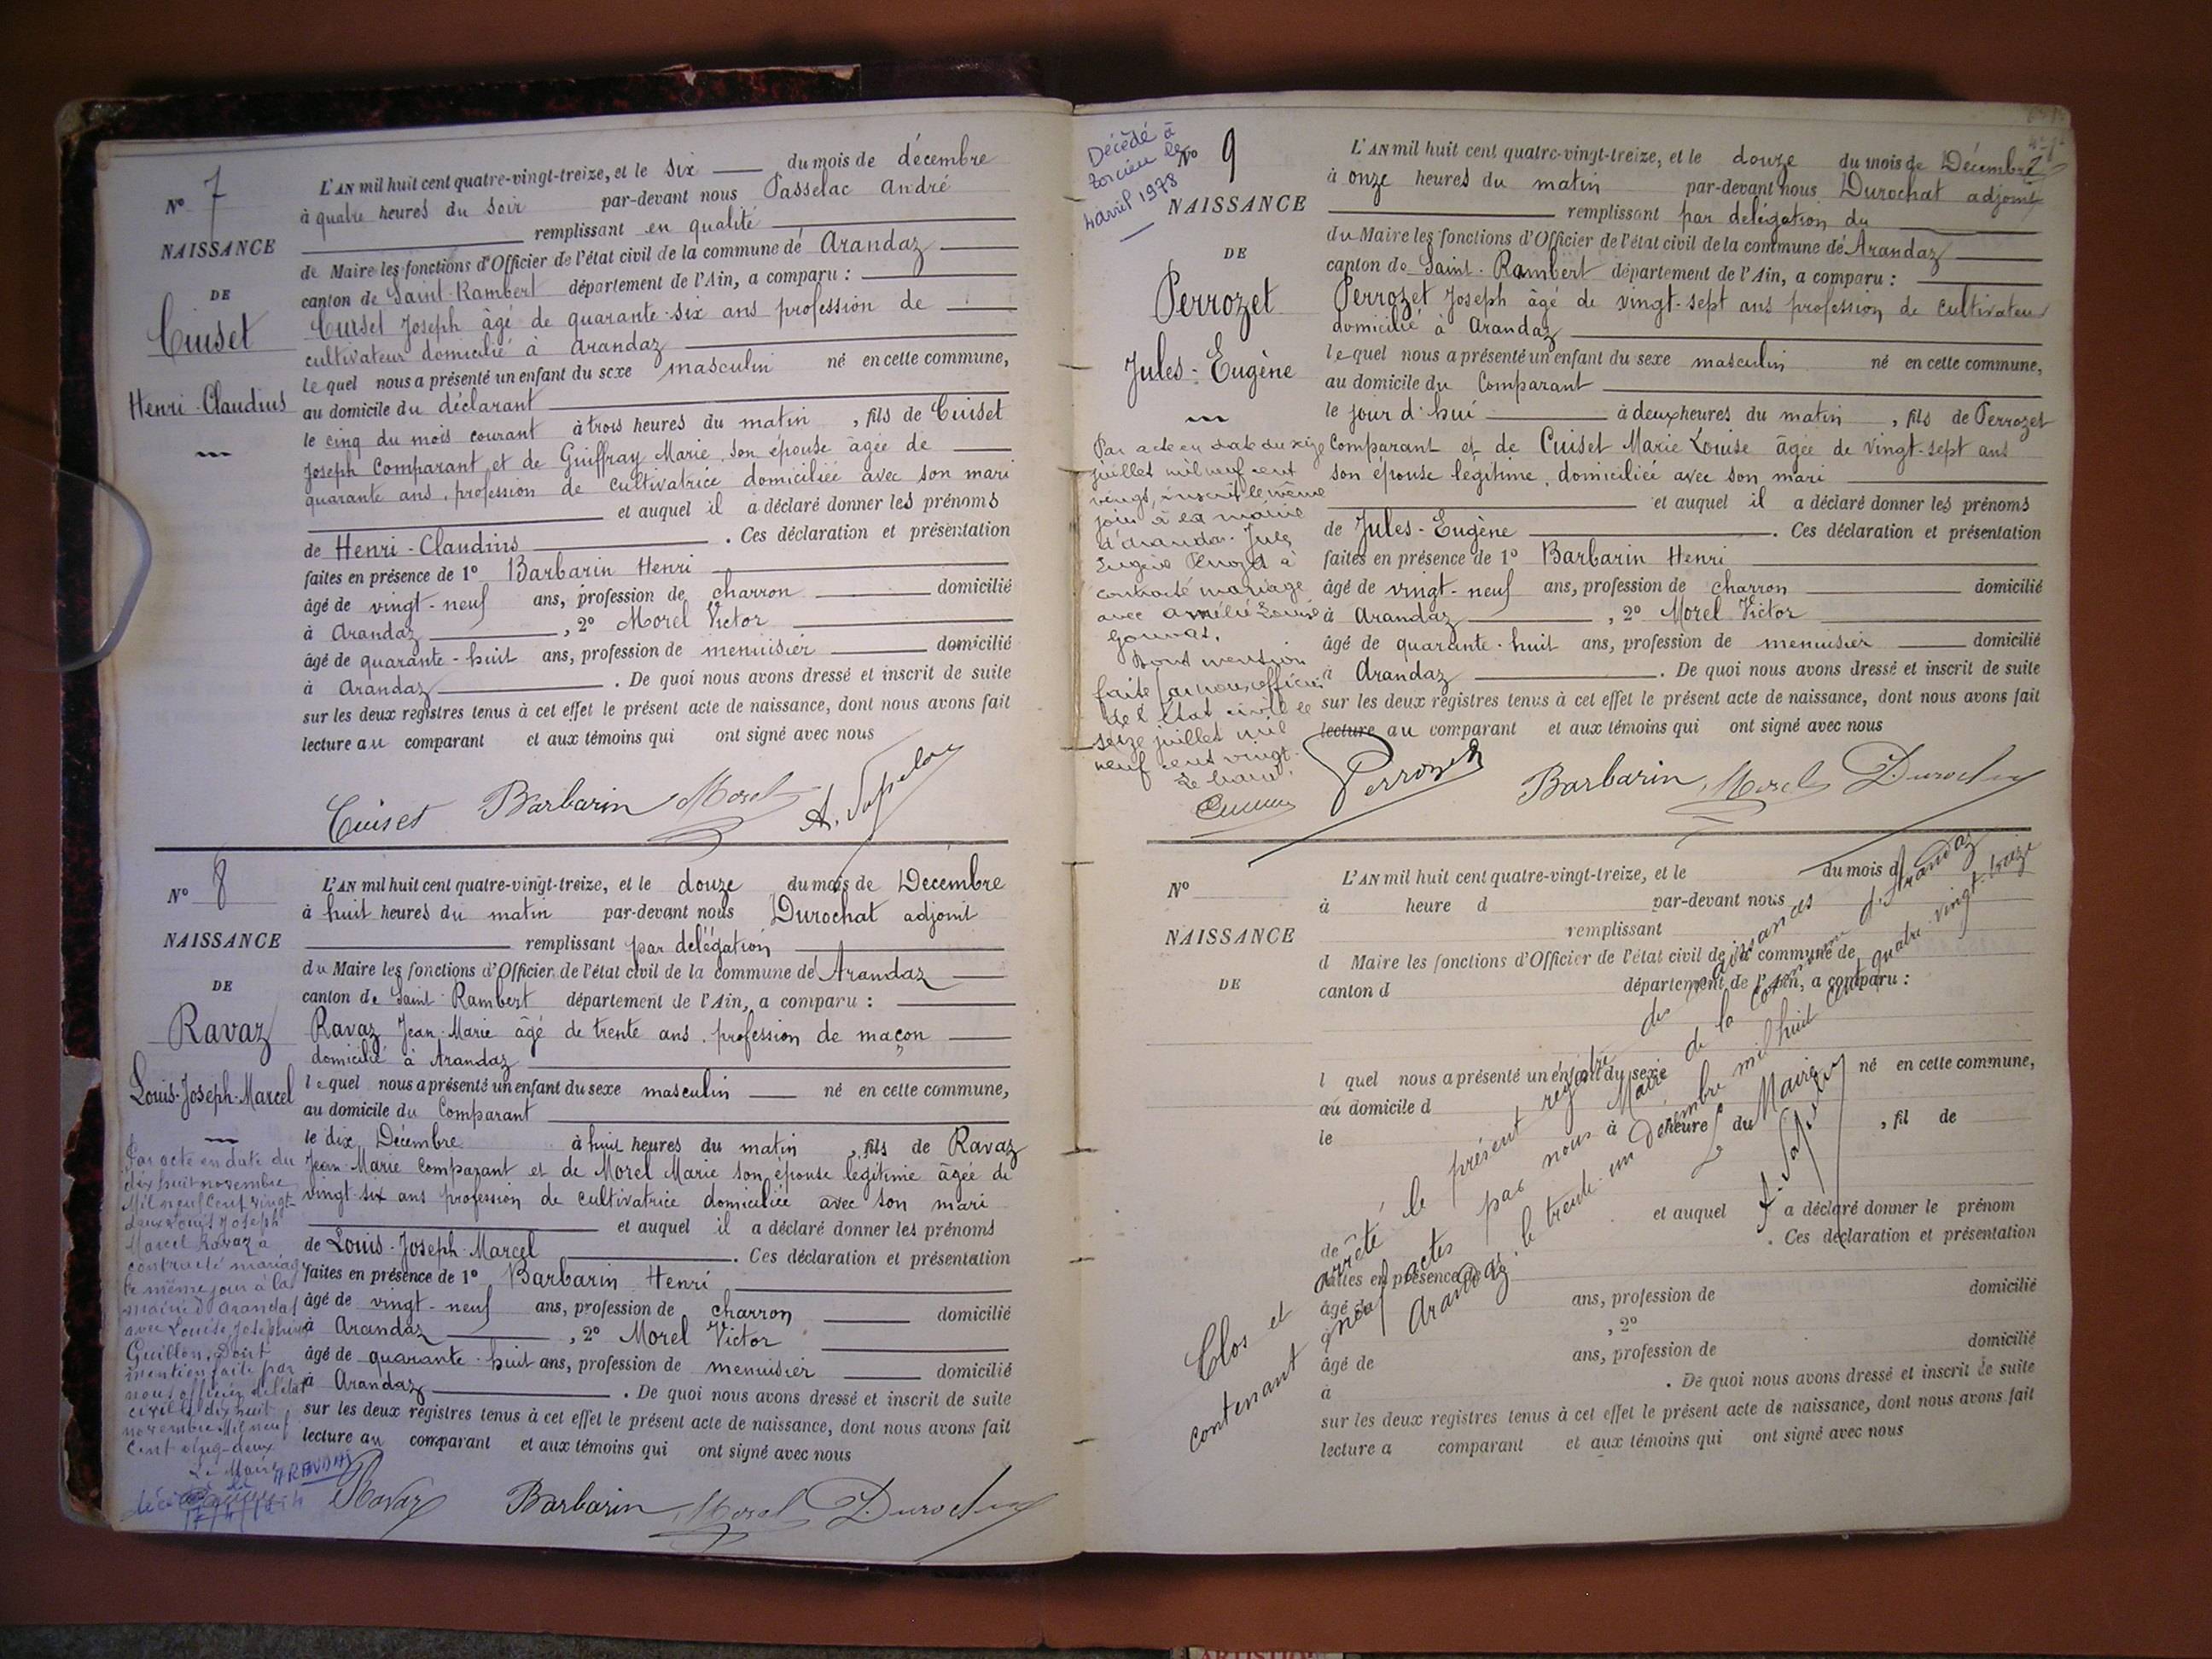 N° 7
NAISSANCE
DE
Cuiset
Henri-Claudius
L'AN mil huit cent quatre-vingt-treize, et le six du mois de décembre
à quatre heures du soir par-devant nous Passelac André
remplissant en qualité
de Maire les fonctions d'Officier de l'état civil de la commune de Arandaz
canton de Saint-Rambert département de l'Ain, a comparu :
Cuiset Joseph âgé de quarante-six ans profession de
cultivateur domicilié à Arandaz
lequel nous a présenté un enfant du sexe masculin né en cette commune,
au domicile du déclarant
le cinq du mois courant à trois heures du matin, fils de Cuiset
Joseph Comparant et de Guiffray Marie son épouse âgée de
quarante ans, profession de cultivatrice domiciliée avec son mari
et auquel il a déclaré donner les prénoms
de Henri-Claudius. Ces déclaration et présentation
faites en présence de 1° Barbarin Henri
âgé de vingt-neuf ans, profession de charron domicilié
à Arandaz, 2° Morel Victor
âgé de quarante-huit ans, profession de menuisier domicilié
à Arandaz. De quoi nous avons dressé et inscrit de suite
sur les deux registres tenus à cet effet le présent acte de naissance, dont nous avons fait
lecture au comparant et aux témoins qui ont signé avec nous
Cuiset Barbarin Morel
N° 8
NAISSANCE
DE
Ravaz
Louis-Joseph-Marcel
Par acte en date du
dix huit novembre
Mil neuf cent vingt-
deux Louis Joseph
Marcel Ravaz a
contracté mariage
le même jour à la
mairie d'Arandas
avec Louise Josephine
Guillon. Dont
mention faite par
nous officier de l'état
civil le dix huit
novembre Mil neuf
cent vingt-deux
Le Maire
ARANDAS
L'AN mil huit cent quatre-vingt-treize, et le douze du mois de Décembre
à huit heures du matin par-devant nous Durochat adjoint
remplissant par délégation
du Maire les fonctions d'Officier de l'état civil de la commune de Arandaz
canton de Saint-Rambert département de l'Ain, a comparu :
Ravaz Jean-Marie âgé de trente ans, profession de maçon
domicilié à Arandaz
lequel nous a présenté un enfant du sexe masculin né en cette commune,
au domicile du Comparant
le dix Décembre à huit heures du matin, fils de Ravaz
Jean-Marie comparant et de Morel Marie son épouse légitime âgée de
vingt-six ans profession de cultivatrice domiciliée avec son mari
et auquel il a déclaré donner les prénoms
de Louis-Joseph-Marcel. Ces déclaration et présentation
faites en présence de 1° Barbarin Henri
âgé de vingt-neuf ans, profession de charron domicilié
à Arandaz, 2° Morel Victor
âgé de quarante-huit ans, profession de menuisier domicilié
à Arandaz. De quoi nous avons dressé et inscrit de suite
sur les deux registres tenus à cet effet le présent acte de naissance, dont nous avons fait
lecture au comparant et aux témoins qui ont signé avec nous
Ravaz Barbarin Morel Durochat
Décédé à
Torcieu le
4 avril 1978
N° 9
NAISSANCE
DE
Perrozet
Jules-Eugène
Par acte en date du
juillet mil neuf cent
vingt, inscrit le même
jour à la mairie
d'Arandas. Jules
Eugène Perrozet a
contracté mariage
avec Amélie Louise
Dont mention
faite par nous, officier
de l'état civil le
seize juillet mil
neuf cent vingt.
Le maire.
L'AN mil huit cent quatre-vingt-treize, et le douze du mois de Décembre
à onze heures du matin par-devant nous Durochat adjoint
remplissant par délégation du
du Maire les fonctions d'Officier de l'état civil de la commune de Arandaz
canton de Saint-Rambert département de l'Ain, a comparu :
Perrozet Joseph âgé de vingt-sept ans profession de cultivateur
domicilié à Arandaz
lequel nous a présenté un enfant du sexe masculin né en cette commune,
au domicile du Comparant
le jour d'hui à deux heures du matin, fils de Perrozet
Comparant et de Cuiset Marie Louise âgée de vingt-sept ans
son épouse légitime, domiciliée avec son mari
et auquel il a déclaré donner les prénoms
de Jules-Eugène. Ces déclaration et présentation
faites en présence de 1° Barbarin Henri
âgé de vingt-neuf ans, profession de charron domicilié
à Arandaz, 2° Morel Victor
âgé de quarante-huit ans, profession de menuisier domicilié
à Arandaz. De quoi nous avons dressé et inscrit de suite
sur les deux registres tenus à cet effet le présent acte de naissance, dont nous avons fait
lecture au comparant et aux témoins qui ont signé avec nous
Perrozet Barbarin Morel Durochat
N°
NAISSANCE
DE
L'AN mil huit cent quatre-vingt-treize, et le du mois d
à heure d par-devant nous
remplissant
d Maire les fonctions d'Officier de l'état civil de la commune de
canton d département de l'Ain, a comparu :
l quel nous a présenté un enfant du sexe né en cette commune,
au domicile d
le à heure du , fil de
et auquel a déclaré donner le prénom
de . Ces déclaration et présentation
faites en présence de 1°
âgé de ans, profession de domicilié
à , 2°
âgé de ans, profession de domicilié
à . De quoi nous avons dressé et inscrit de suite
sur les deux registres tenus à cet effet le présent acte de naissance, dont nous avons fait
lecture a comparant et aux témoins qui ont signé avec nous
Clos et arrêté le présent registre des naissances
contenant neuf actes par nous Maire de la commune d'Arandaz
Arandaz, le trente-un Décembre mil huit cent quatre-vingt-treize
Le Maire
ARTISTIQUE